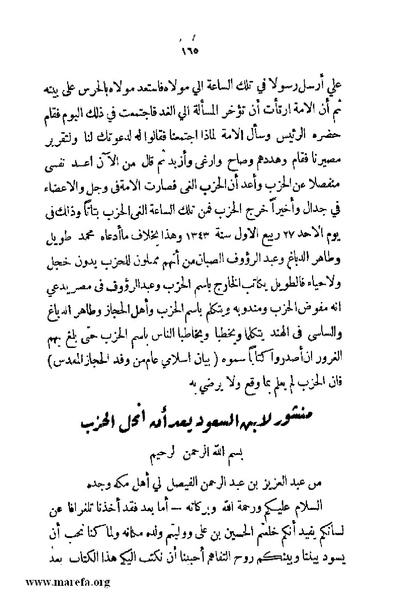 ١٦٥
علي أرسل رسولا في تلك الساعة الي مولاه فاستعد مولاه بالحرس على بيته
ثم أن الامة ارتأت أن تؤخر المسألة الي الغد فاجتمعت في ذلك اليوم فقام
حضره الرئيس وسأل الامة لماذا اجتمعنا فقالوا له لدعوتك لنا ولتقرير
مصيرنا فقام وهددهم وصاح وارغى وأزبد ثم قال من الآن اعد نفسى
منفصلا عن الحزب وأعد أن الحزب الغى فصارت الامة في وجل والاعضاء
في جدال وأخيراً خرج الحزب فمن تلك الساعة الغى الحزب بتاتاً وذلك في
يوم الاحد ٢٧ ربيع الاول سنة ١٣٤٣ وهذا بخلاف ماأدعاه محمد طويل
وطاهر الدباغ وعبد الرؤوف الصبان من أنهم ممثلون للحزب بدون خجل
ولاحياء فالطويل يكاتب الخارج باسم الحزب وعبد الرؤوف في مصر يدعي
انه مفوض الحزب ومندوبه ويتكلم باسم الحزب وأهل الحجاز وطاهر الدباغ
والساسى في الهند يتكلما ويخطبا ويخاطبا الناس باسم الحزب حتى بلغ بهم
الغرور ان أصدروا كتاباً سموه ( بيان اسلامي عام من وفد الحجاز المقدس )
فان الحزب لم يعلم بما وقع ولا يرضي به
منشور لابن السعود بعد أن انحل الحزب
بسم الله الرحمن الرحيم
من عبد العزيز بن عبد الرحمن الفيصل لي أهل مكه وجده
السلام عليكم ورحمة الله وبركاته — أما بعد فقد أخذنا تلغرافا عن
لسانكم يفيد أنكم خلعتم الحسين بن على ووليتم ولده مكانه ولما كنا نحب أن
يسود بيننا وبينكم روح التفاهم أحببنا أن نكتب اليكم هذا الكتاب بعد
www.marefa.org